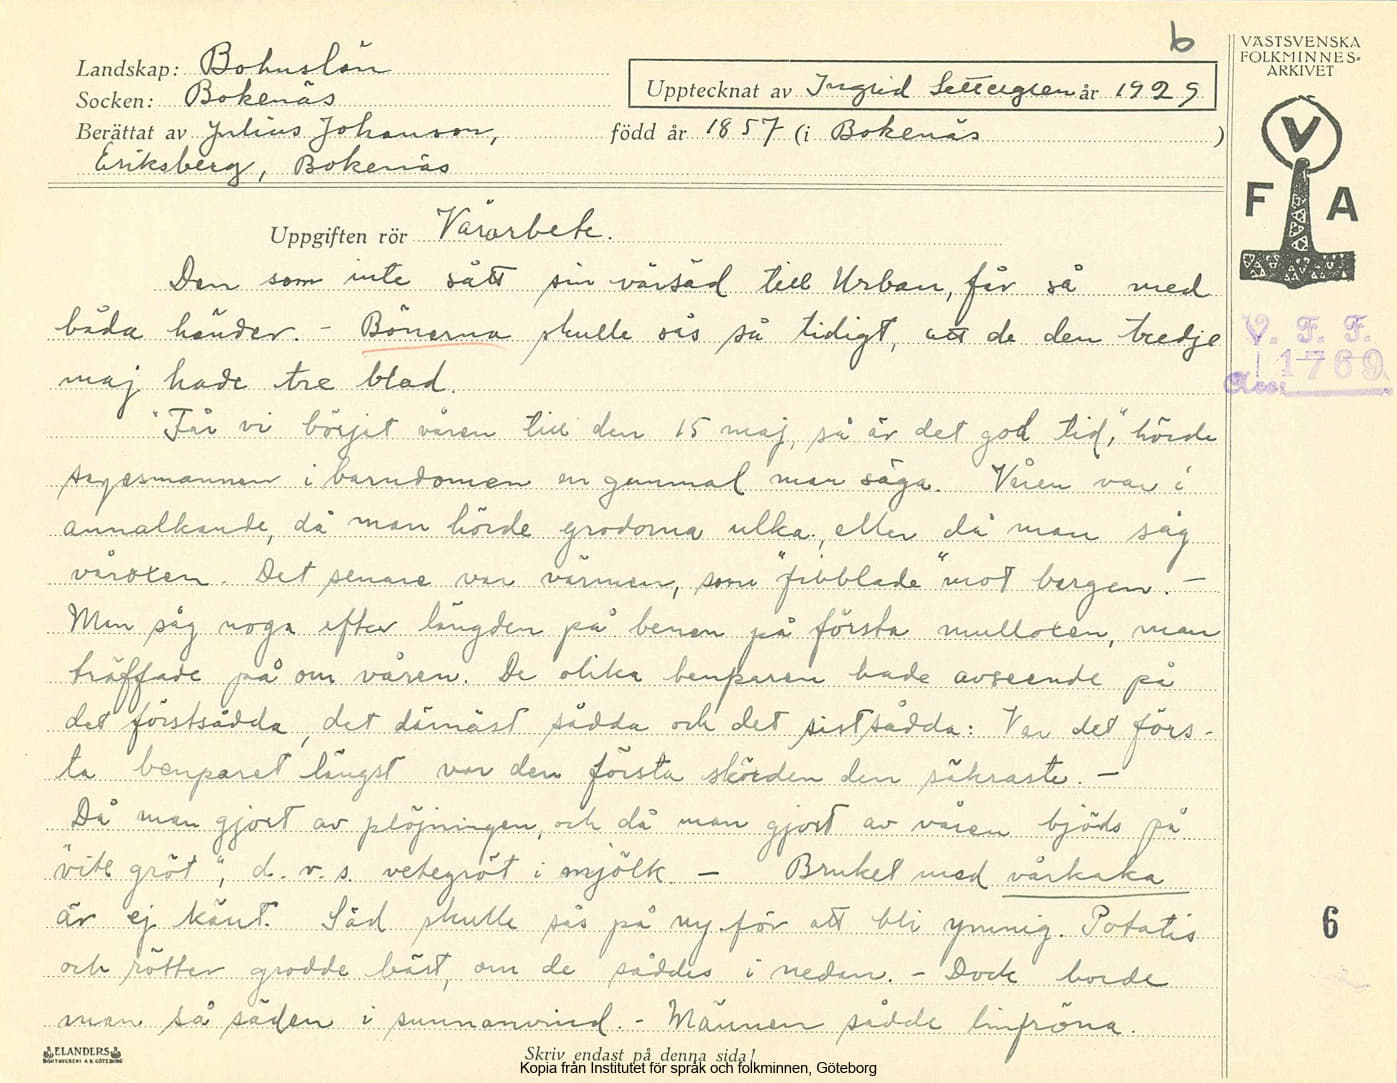 b
VÄSTSVENSKA
FOLKMINNES-
ARKIVET
V
F A
Landskap: Bohuslän
Socken: Bokenäs
Upptecknat av Ingrid år 1929
Berättat av Julius Johanson, född år 1857 (i Bokenäs )
Eriksberg, Bokenäs
Uppgiften rör Vårarbete.
Den som inte sått sin vårsäd till Urban, får så med
båda händer. – Bönorna skulle sås så tidigt, att de den tredje
maj hade tre blad.
"Får vi börjat våren till den 15 maj, så är det god tid", hörde
sagesmannen i barndomen en gammal man säga. Våren var i
annalkande, då man hörde grodorna ulka, eller då man såg
våroxen. Det senare var värmen, som "fibblade" mot bergen. –
Man såg noga efter längden på benen på första mulloxen, man
träffade på om våren. De olika benparen hade avseende på
det förstsådda, det därnäst sådda och det sistsådda: Var det förs-
ta benparet längst var den första skörden den säkraste. –
Då man gjort av plöjningen, och då man gjort av våren bjöds på
"vite gröt", d.v.s. vetegröt i mjölk. – Bruket med vårkaka
är ej känt. Säd skulle sås på ny för att bli ymnig. Potatis
och rötter grodde bäst, om de såddes i nedan. – Dock borde
man så säden i sunnanvind. – Männen sådde linfröna.
V. F. F.
1769
Acc.
6
ELANDERS
BOKTRYCKERI A.B. GÖTEBORG
Skriv endast på denna sida!
Kopia från Institutet för språk och folkminnen, Göteborg